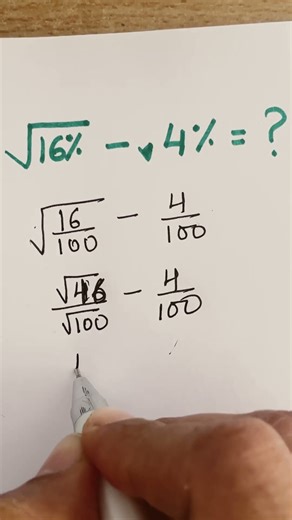 √16% - √4% = ?
√16/100 - 4/100
√16/√100 - 4/100